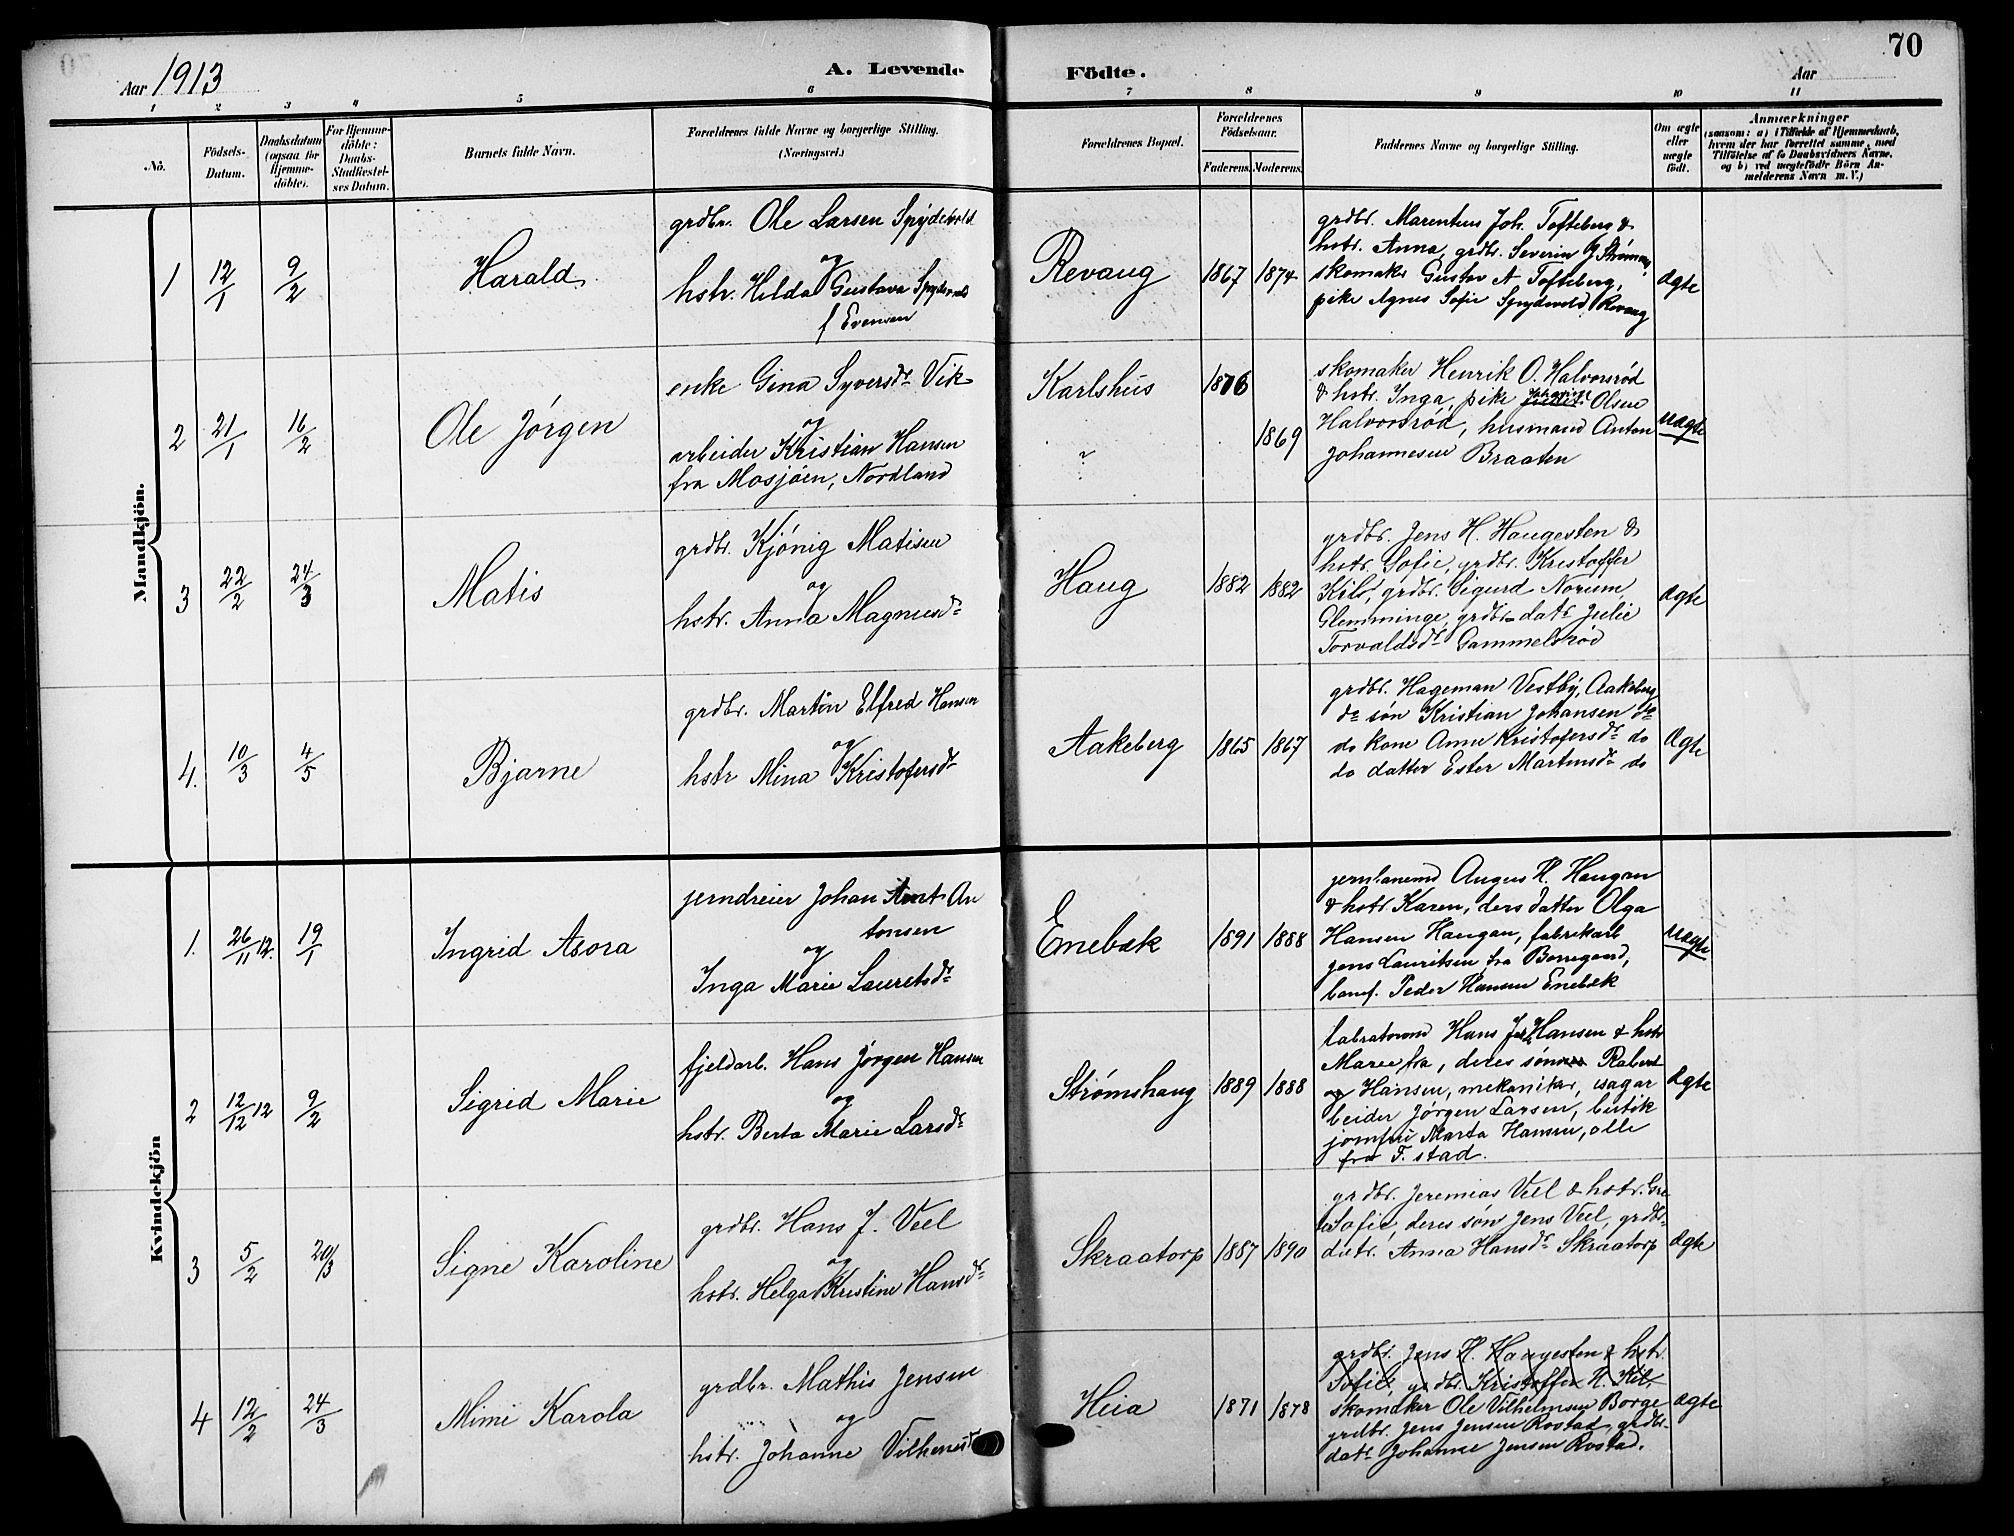 70
Aar 1913
A. Levende Födte.
Aar
1 2 3 4 5 6 7 8 9 10 11
Nö.
Födsels-
Datum.
Daabsdatum
(ogsaa for
Hjemme-
döbte).
For Hjemme-
döbte:
Daabs-
Stadfæstel-
ses Datum.
Barnets fulde Navn.
Forældrenes fulde Navne og borgerlige Stilling.
(Næringsvei.)
Forældrenes Bopæl.
Forældrenes
Födselsaar.
Faderens. Moderens.
Faddernes Navne og borgerlige Stilling.
Om ægte
eller
uægte
født.
Anmærkninger
(saasom: a) i Tilfælde af Hjemmedaab,
hvem der har forrettet samme, med
Tilföielse af to Daabsvidners Navne,
og b) ved uægtefödte Börn An-
melderens Navn m. V.)
Mandkjön.
1 12/1 9/2
Harald
grdbr. Ole Larsen Spydevold
og
hstr. Hilda Gustava Spydevold
f Evensen
Revaug
1867 1874
grdbr. Marentius Joh. Tofteberg &
hstr. Anna, grdbr. Severin
skomaker Gustav A Tofteberg,
pike Agnes Sofie Spydevold, Revaug
ægte
2 21/1 16/2
Ole Jørgen
enke Gina Syversdr Vik
og
arbeider Kristian Hansen
fra Mosjøen, Nordland
Karlshus
?
1876
1869
skomaker Henrik O. Halvorsrød
& hstr. Inga, pike Olsen
Halvorsrød, husmand Anton
Johannesen Braaten
uægte
3 22/2 24/3
Matis
grdbr. Kjønig Matisen
og
hstr. Anna Magnusdr
Haug
1882 1882
grdbr. Jens H. Haugesten &
hstr. Sofie, grdbr. Kristoffer
Kil, grdbr. Sigurd Norum,
Glemminge, grdbr. datr Julie
Torvaldsdr Gammelsrød
ægte
4. 10/3 4/5
Bjarne
grdbr. Martin Elfred Hansen
og
hstr Mina Kristofersdr
Aakeberg
1865 1867
grdbr. Hageman Vestby, Aakeberg
do søn Kristian Johansen do
do kone Anne Kristofersdr do
do datter Ester Martinsdr do
ægte
Kvindekjön
1. 26/11 12. 19/1
Ingrid Asora
jerndreier Johan Arnt An
tonsen
og
Inga Marie Lauretsdr
Enebæk
1891 1888
jernbanemd August H. Haugan
& hstr Karen, ders datter Olga
Hansen Haugan, fabrikarb
Jens Lauritsen fra Borregaard,
banef. Peder Hansen Enebæk
uægte
2 12/12 12 9/2
Sigrid Marie
fjeldarb. Hans Jørgen Hansen
og
hstr. Berta Marie Larsdr
Strømshaug
1889 1888
labratormd Hans Hansen & hstr
Marie fra, deres søn
Hansen, mekaniker, sagar
beider Jørgen Larsen, butik
jomfru Marta Hansen, alle
fra F. stad.
ægte
3 5/2 20/3
Signe Karoline
grdbr. Hans J. Veel
og
hstr. Helga Kristine Hansdr
Skraatorp
1887 1890
grdbr. Jeremias Veel & hstr. Gre
ta Sofie, deres søn Jens Veel, grdbr-
datr. Anna Hansdr Skraatorp
ægte
4 12/2 24/3
Mimi Karola
grdbr. Mathis Jensen
og
hstr. Johanne
Heia
1871 1878
grdbr. Jens H. Haugesten & hstr.
Sofie, grdbr. Kristoffer H. Kil,
skomaker Ole Vilhelmsen Borge
grdbr. Jens Jensen Rostad, grdbr.
datr Johanne Jensen Rostad.
ægte